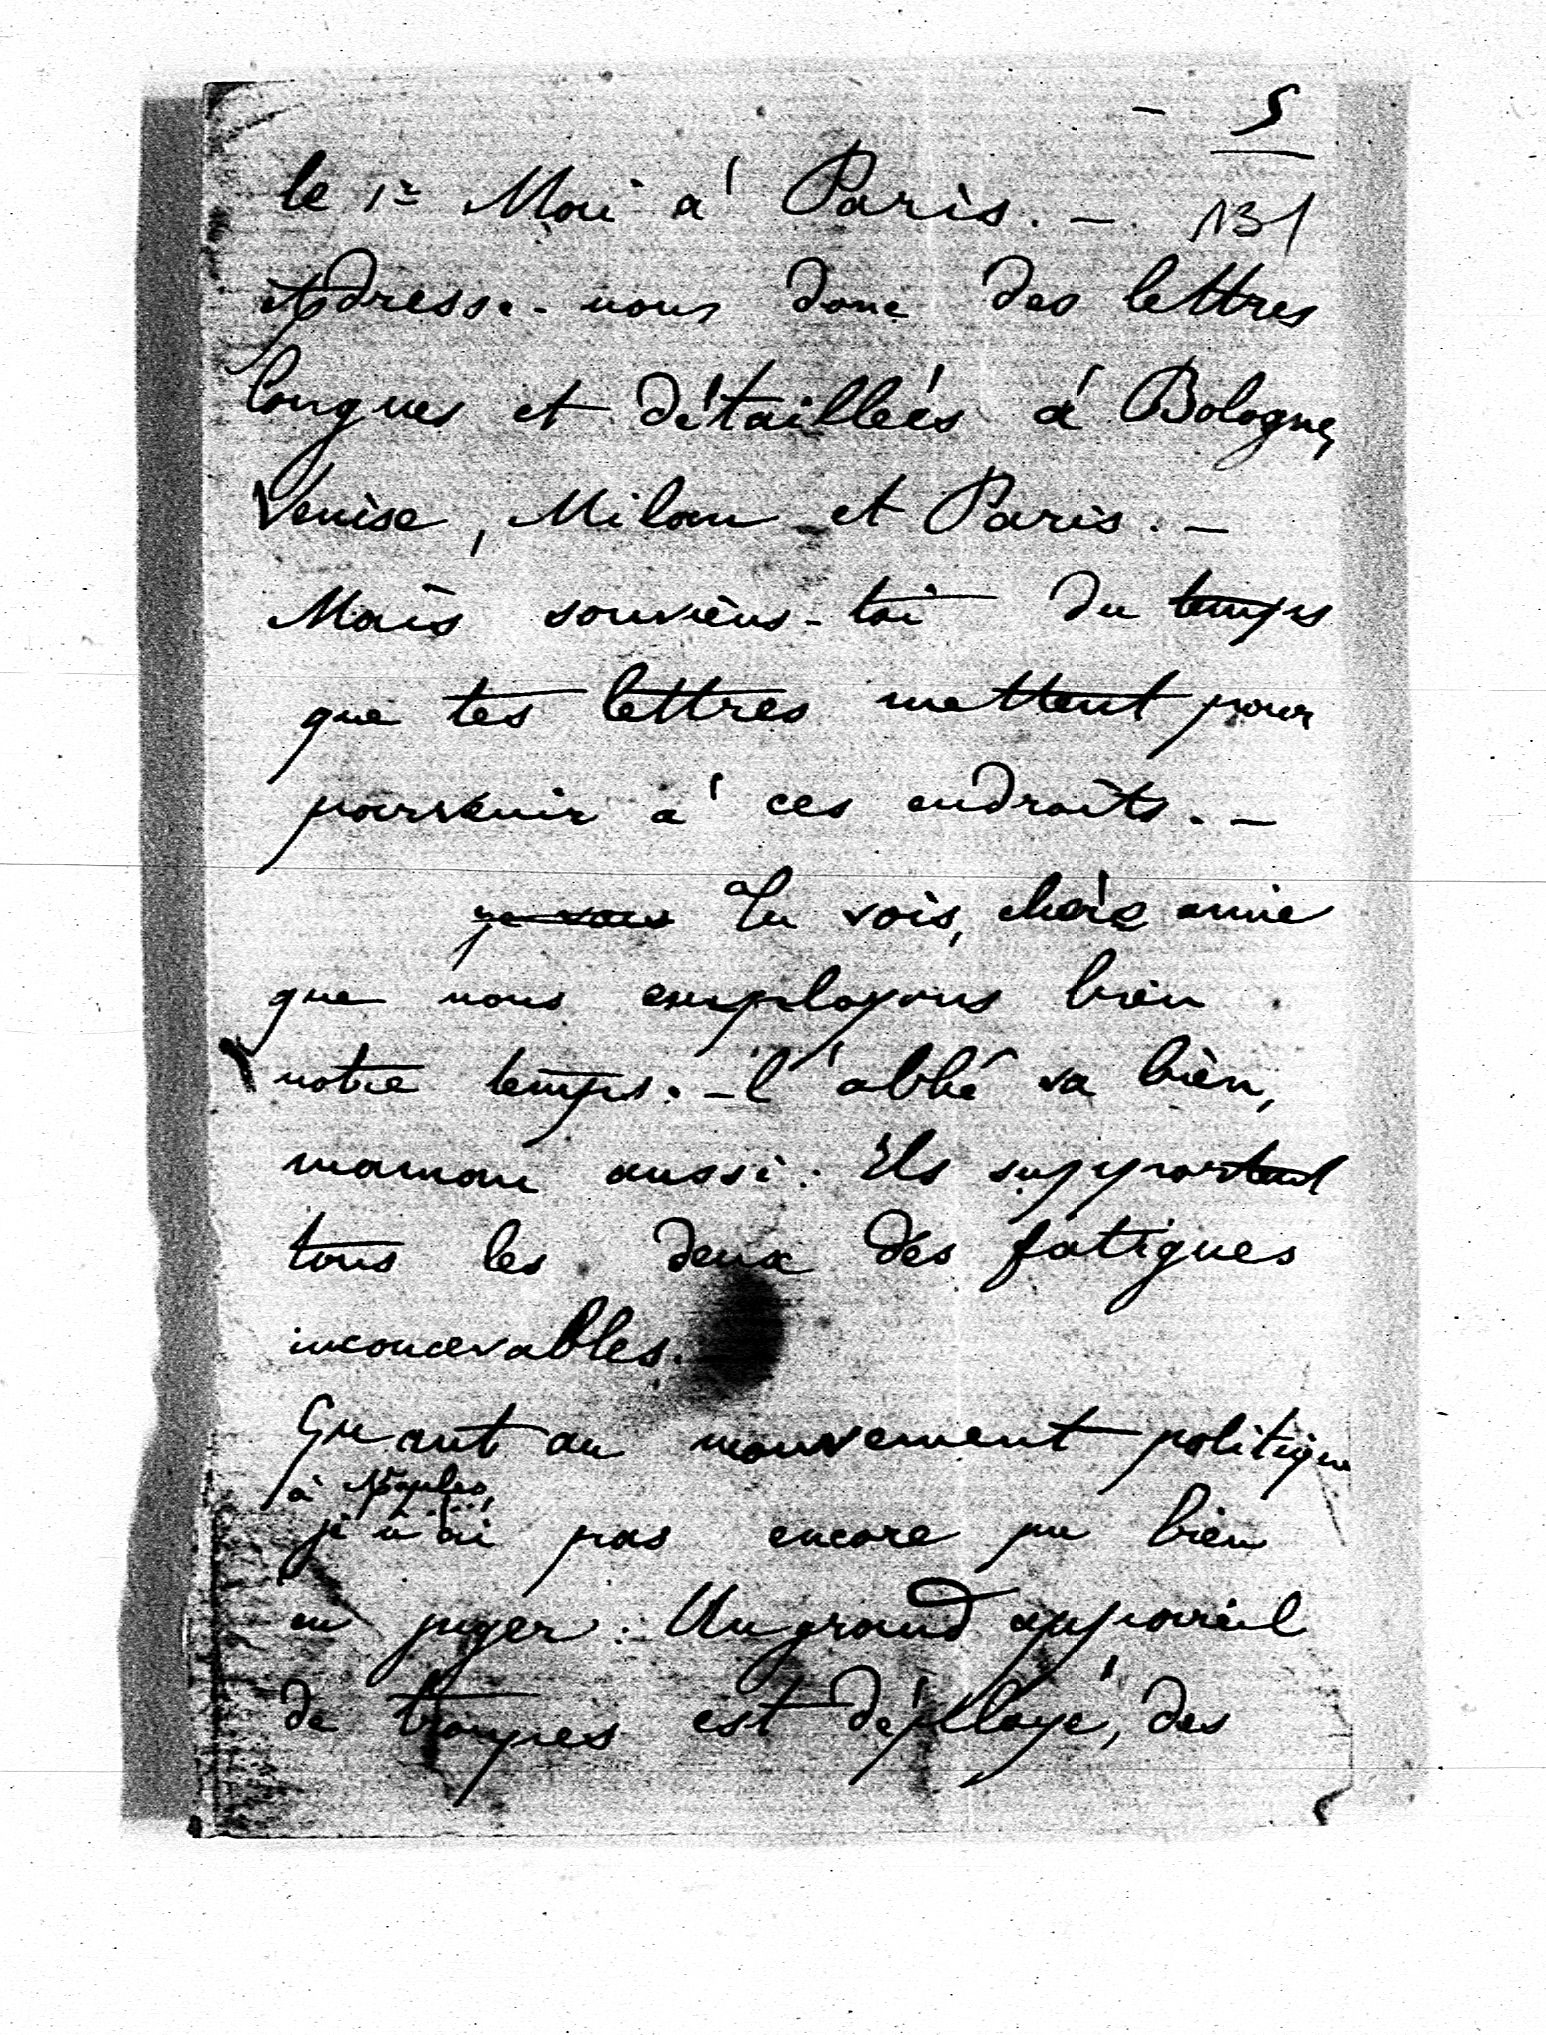 - 5
le 1er Mai à Paris. - 131
Adresse-nous donc des lettres
longues et détaillées à Bologne,
Venise, Milan et Paris. -
Mais souviens-toi du temps
que tes lettres mettent pour
parvenir à ces endroits. -
je vais Tu vois, chère amie
que nous employons bien
notre temps. - l'abbé va bien,
maman aussi. Ils supportent
tous les deux des fatigues
inconcevables.
Quant au mouvement politique
à Naples,
je n'ai pas encore pu bien
en juger. Un grand appareil
de troupes est déployé, des